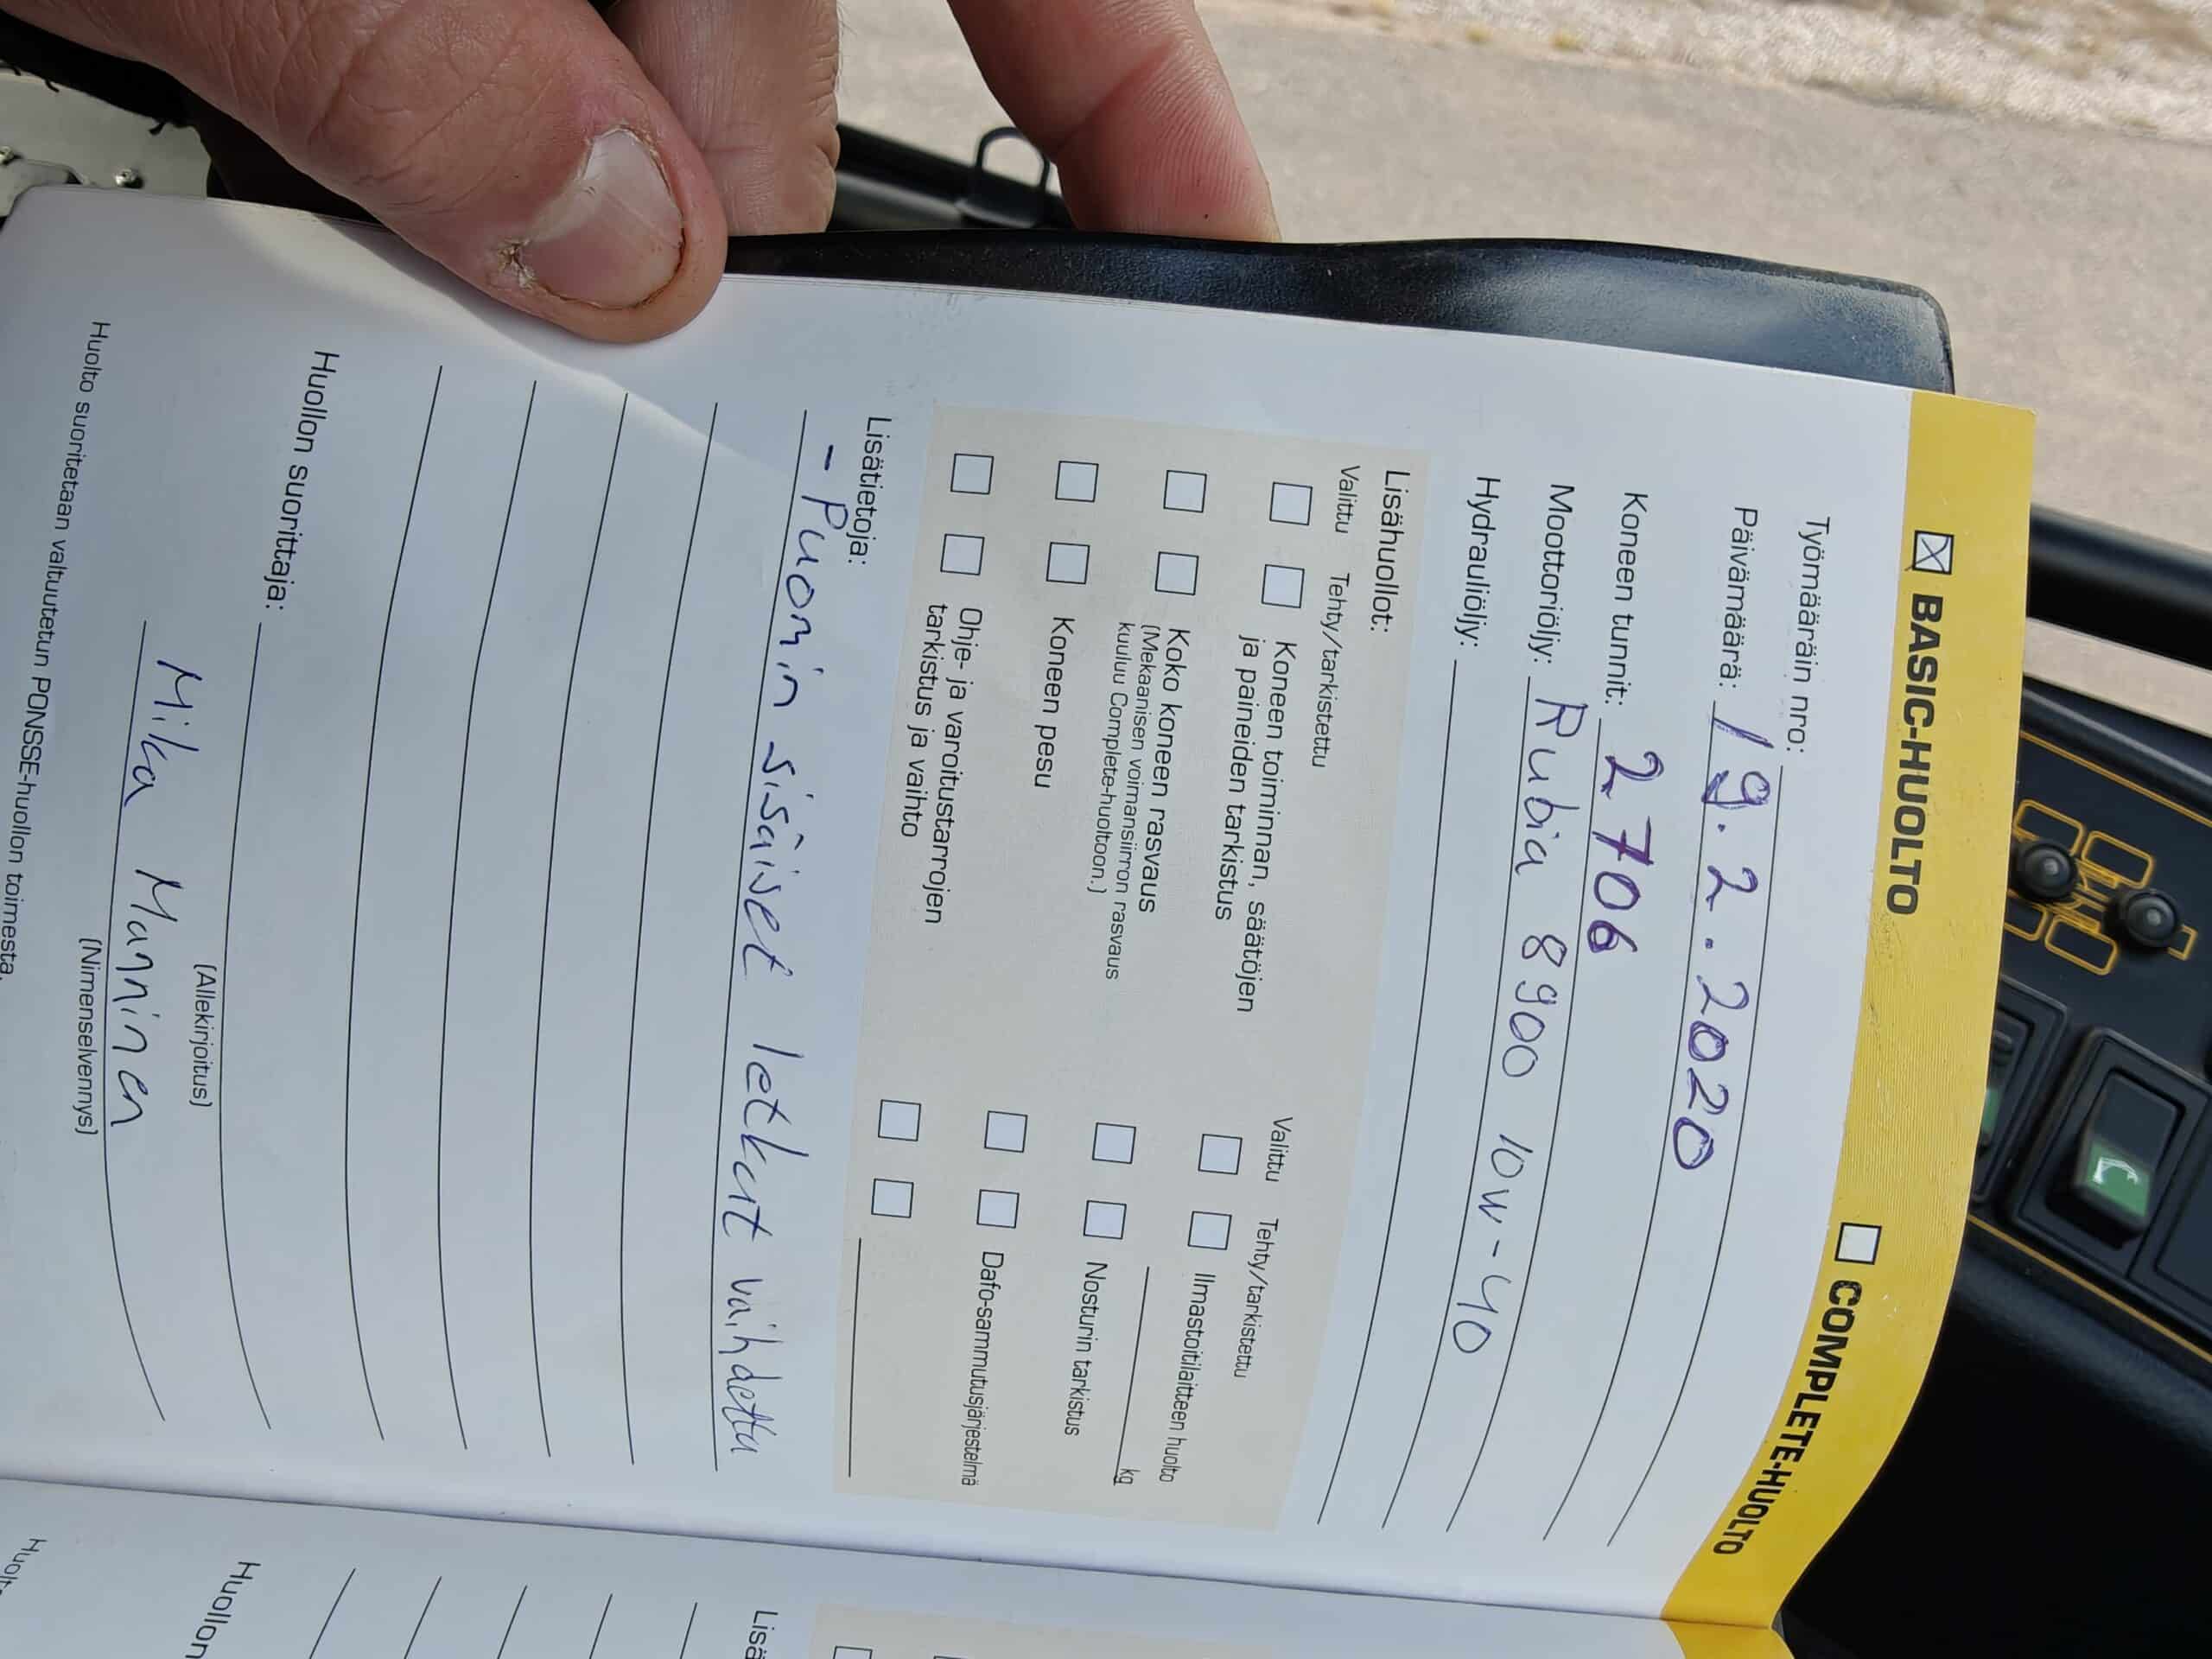 BASIC-HUOLTO COMPLETE-HUOLTO
Työmääräin nro:
Päivämäärä: 19.2.2020
Koneen tunnit: 2706
Moottoriöljy: Rubia 8900 10w-40
Hydrauliöljy:
Lisähuollot:
Valittu Tehty/tarkistettu
Koneen toiminnan, säätöjen
ja paineiden tarkistus
Koko koneen rasvaus
(Mekaanisen voimansiirron rasvaus
kuuluu Complete-huoltoon.)
Koneen pesu
Ohje- ja varoitustarrojen
tarkistus ja vaihto
Valittu Tehty/tarkistettu
Ilmastoitilaitteen huolto
kg
Nosturin tarkistus
Dafo-sammutusjärjestelmä
Lisätietoja:
- Puomin sisäiset letkut vaihdettu
Huollon suorittaja:
(Allekirjoitus)
Mika Manninen
(Nimenselvennys)
Huolto suoritetaan valtuutetun PONSSE-huollon toimesta.
Lisä
Huollon